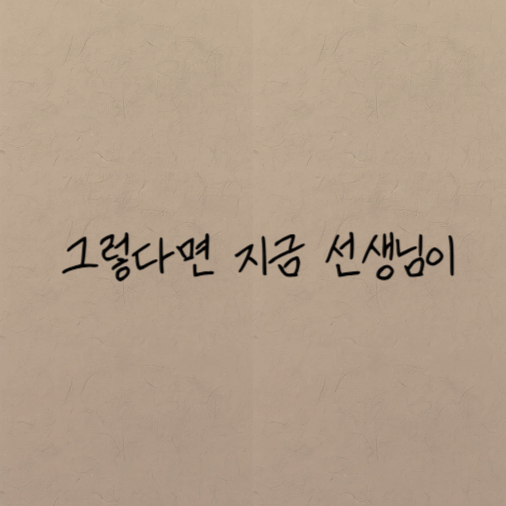 그렇다면 지금 선생님이